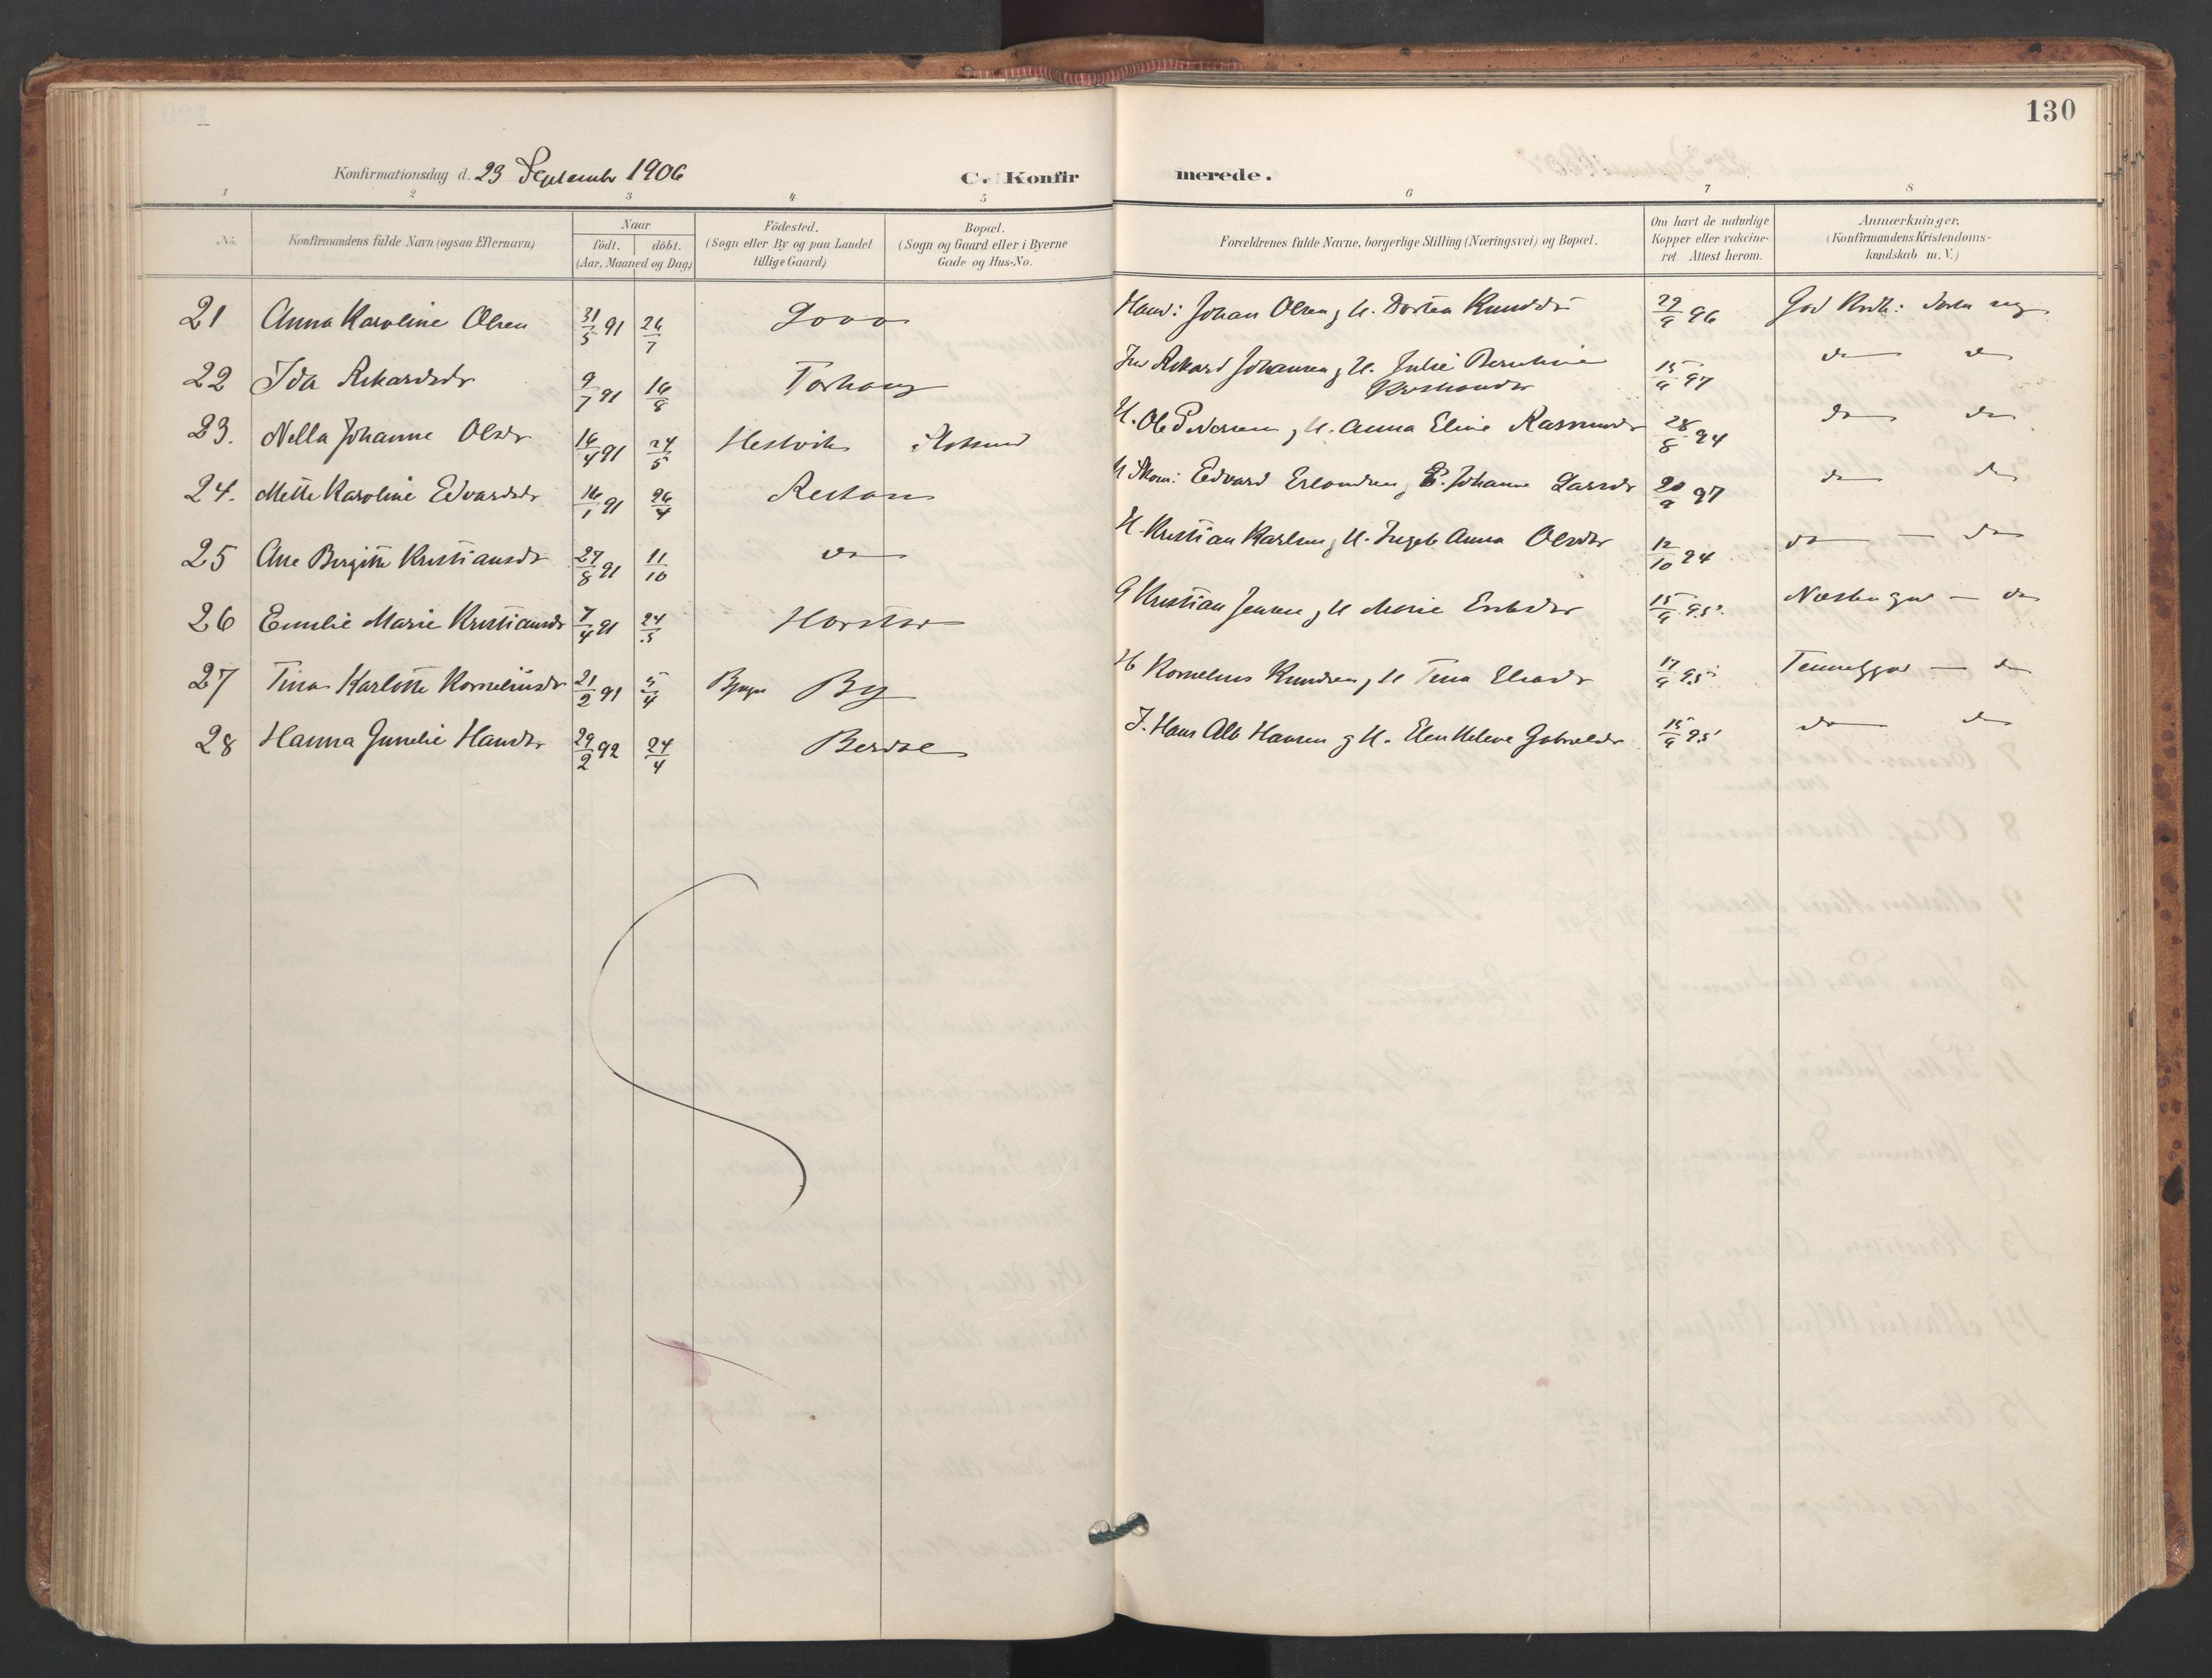 130
Konfirmationsdag d. 23 September 1906
C. Konfirmerede.
1 2 3 4 5 6 7 8
No.
Konfirmandens fulde Navn (ogsaa Efternavn)
Naar
födt. döbt.
(Aar, Maaned og Dag)
Födested.
(Sogn eller By og paa Landet
tillige Gaard)
Bopæl.
(Sogn og Gaard eller i Byerne
Gade og Hus-No.
Forældrenes fulde Navne, borgerlige Stilling (Næringsvei) og Bopæl.
Om havt de naturlige
Kopper eller vakcine-
ret Attest herom.
Anmærkninger.
(Konfirmandens Kristendoms-
kundskab m.V.)
21 Anna Karoline Olsen 31/5 91 26/7 Johan Olsen g H. Dortea 29/9 96 God
22 Ida Rikardsdr 9/7 91 16/8 Torhaug Rikard Johansen g H. Julie 15/9 97 do do
23. Nella Johanne Olsdr 16/4 91 24/5 Hestvik H. Ole Pedersen g H. Anna Eline Rasmusdr 28/8 94 do do
24. Mette Karoline Edvardsdr 16/1 91 26/4 Edvard Erlandsen g Johanne Larsdr 20/9 97 do do
25 Ane Bergitte Kristiansdr 27/8 91 11/10 do H. Kristian Karlsen g H. Ingeb Anna Olsdr 12/10 94 do — do
26 Emelie Marie Kristiansdr 7/4 91 24/5 Kristian Jensen g H Marie 15/9 95. — do
27 Tina Karlotte Korneliusdr 21/2 91 5/4 By H Kornelius Knudsen g H Tina Eliasdr 17/9 95 — do
28 Hanna Hansdr 29/2 92 24/4 J. Hans Alb Hansen g H. Elen Helene Gabrielsdr 15/9 95 do do